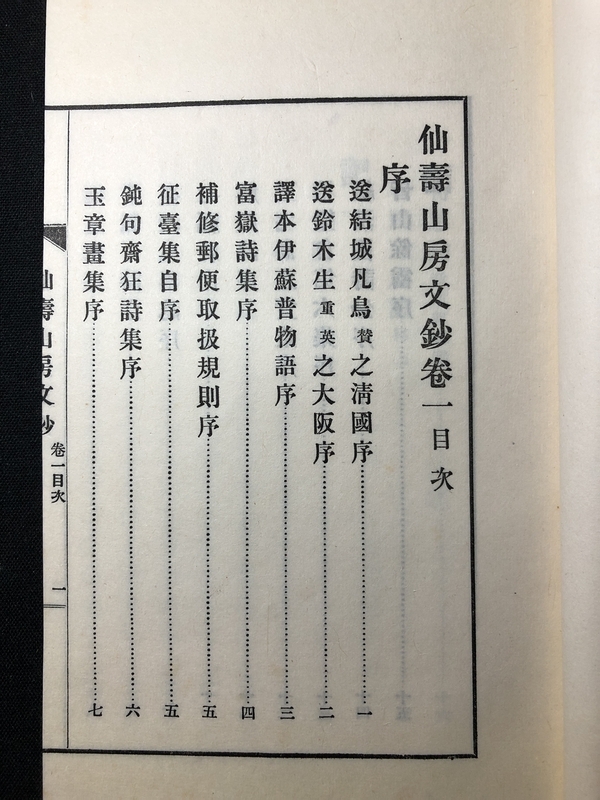 仙壽山房文鈔卷一目次
序
送結城凡鳥贊之淸國序 一
送鈴木生重英之大阪序 二
譯本伊蘇普物語序 三
富嶽詩集序 四
補修郵便取扱規則序 五
征臺集自序 五
鈍句齋狂詩集序 六
玉章畫集序 七
仙壽山房文鈔 卷一目次 一